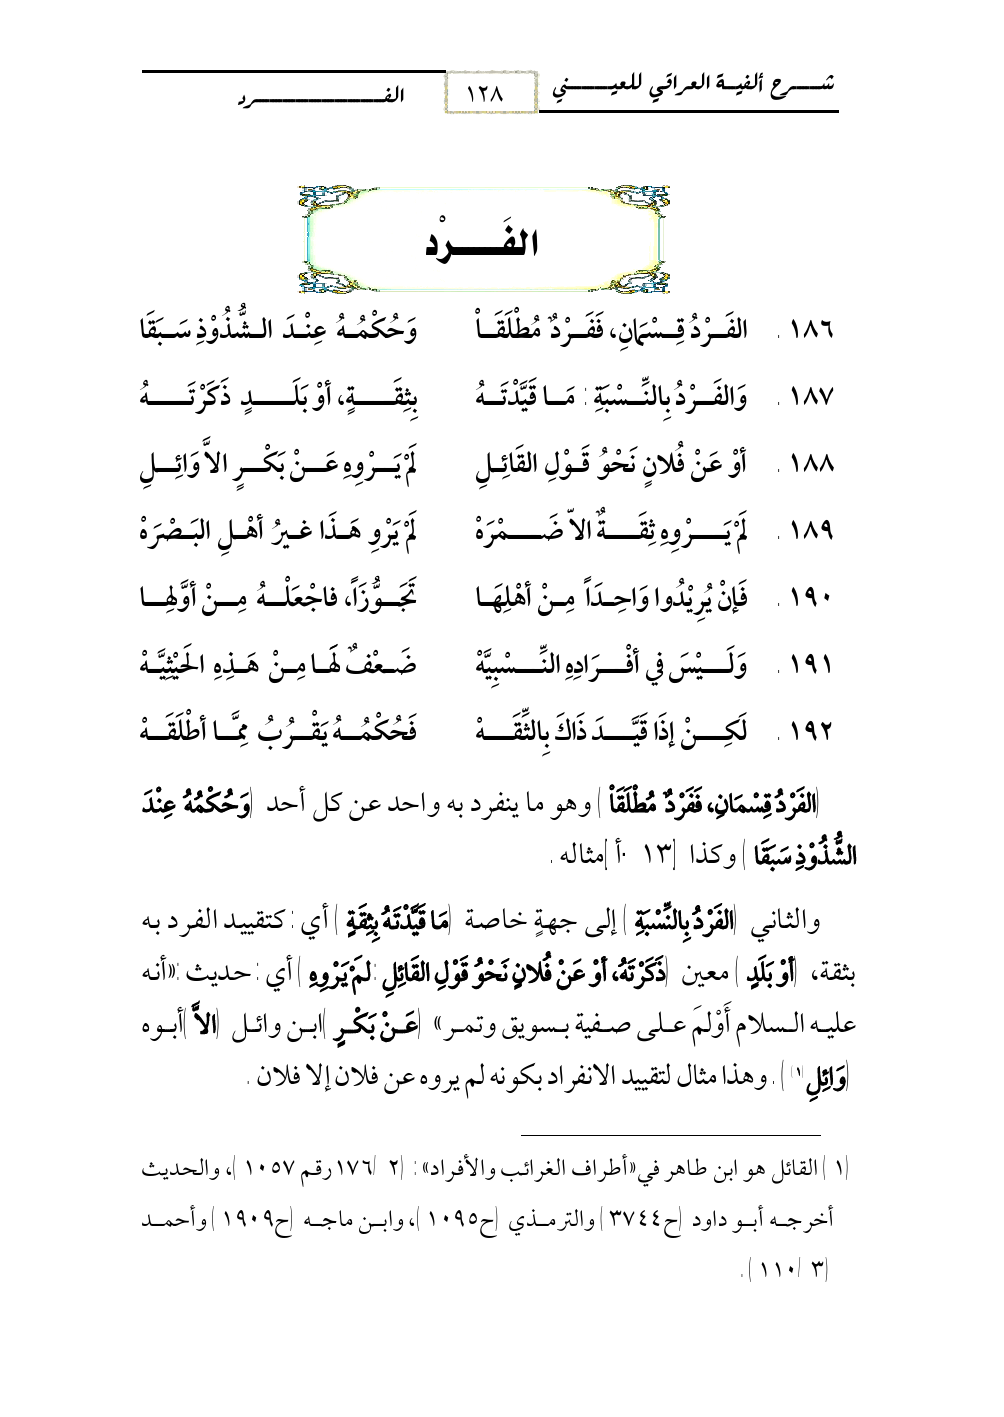 شرح ألفية العراقي للعيني ١٢٨ الفرد
الفَرْد
١٨٦. الفَرْدُ قِسْمَانِ، فَفَرْدٌ مُطْلَقَاْ وَحُكْمُهُ عِنْدَ الشُّذُوْذِ سَبَقَا
١٨٧. وَالفَرْدُ بِالنِّسْبَةِ: مَا قَيَّدْتَهُ بِثِقَةٍ، أوْ بَلَدٍ ذَكَرْتَهُ
١٨٨. أوْ عَنْ فُلانٍ نَحْوُ قَوْلِ القَائِلِ لَمْ يَرْوِهِ عَنْ بَكْرٍ الاَّ وَائِلِ
١٨٩. لَمْ يَرْوِهِ ثِقَةٌ الاّ ضَمْرَهْ لَمْ يَرْوِ هَذَا غيرُ أهْلِ البَصْرَهْ
١٩٠. فَإنْ يُرِيْدُوا وَاحِدَاً مِنْ أهْلِهَا تَجَوُّزَاً، فاجْعَلْهُ مِنْ أوَّلِهِا
١٩١. وَلَيْسَ في أفْرَادِهِ النِّسْبِيَّهْ ضَعْفٌ لَهَا مِنْ هَذِهِ الحَيْثِيَّهْ
١٩٢. لَكِنْ إذَا قَيَّدَ ذَاكَ بِالثِّقَهْ فَحُكْمُهُ يَقْرُبُ مِمَّا أطْلَقَهْ
(الفَرْدُ قِسْمَانِ، فَفَرْدٌ مُطْلَقَاْ) وهو ما ينفرد به واحد عن كل أحد (وَحُكْمُهُ عِنْدَ
الشُّذُوْذِ سَبَقَا) وكذا [١٣٠أ] مثاله.
والثاني (الفَرْدُ بِالنِّسْبَةِ) إلى جهةٍ خاصة (مَا قَيَّدْتَهُ بِثِقَةٍ) أي: كتقييد الفرد به
بثقة، (أوْ بَلَدٍ) معين (ذَكَرْتَهُ، أوْ عَنْ فُلانٍ نَحْوُ قَوْلِ القَائِلِ: لمْ يَرْوِهِ) أي: حديث: «أنه
عليه السلام أَوْلمَ على صفية بسويق وتمر» (عَنْ بَكْرٍ) ابن وائل (الاَّ) أبوه
(وَائِلِ(١)). وهذا مثال لتقييد الانفراد بكونه لم يروه عن فلان إلا فلان.
(١) القائل هو ابن طاهر في «أطراف الغرائب والأفراد»: (٢/١٧٦ رقم ١٠٥٧)، والحديث
أخرجه أبو داود (ح٣٧٤٤) والترمذي (ح١٠٩٥)، وابن ماجه (ح١٩٠٩) وأحمد
(٣/١١٠).